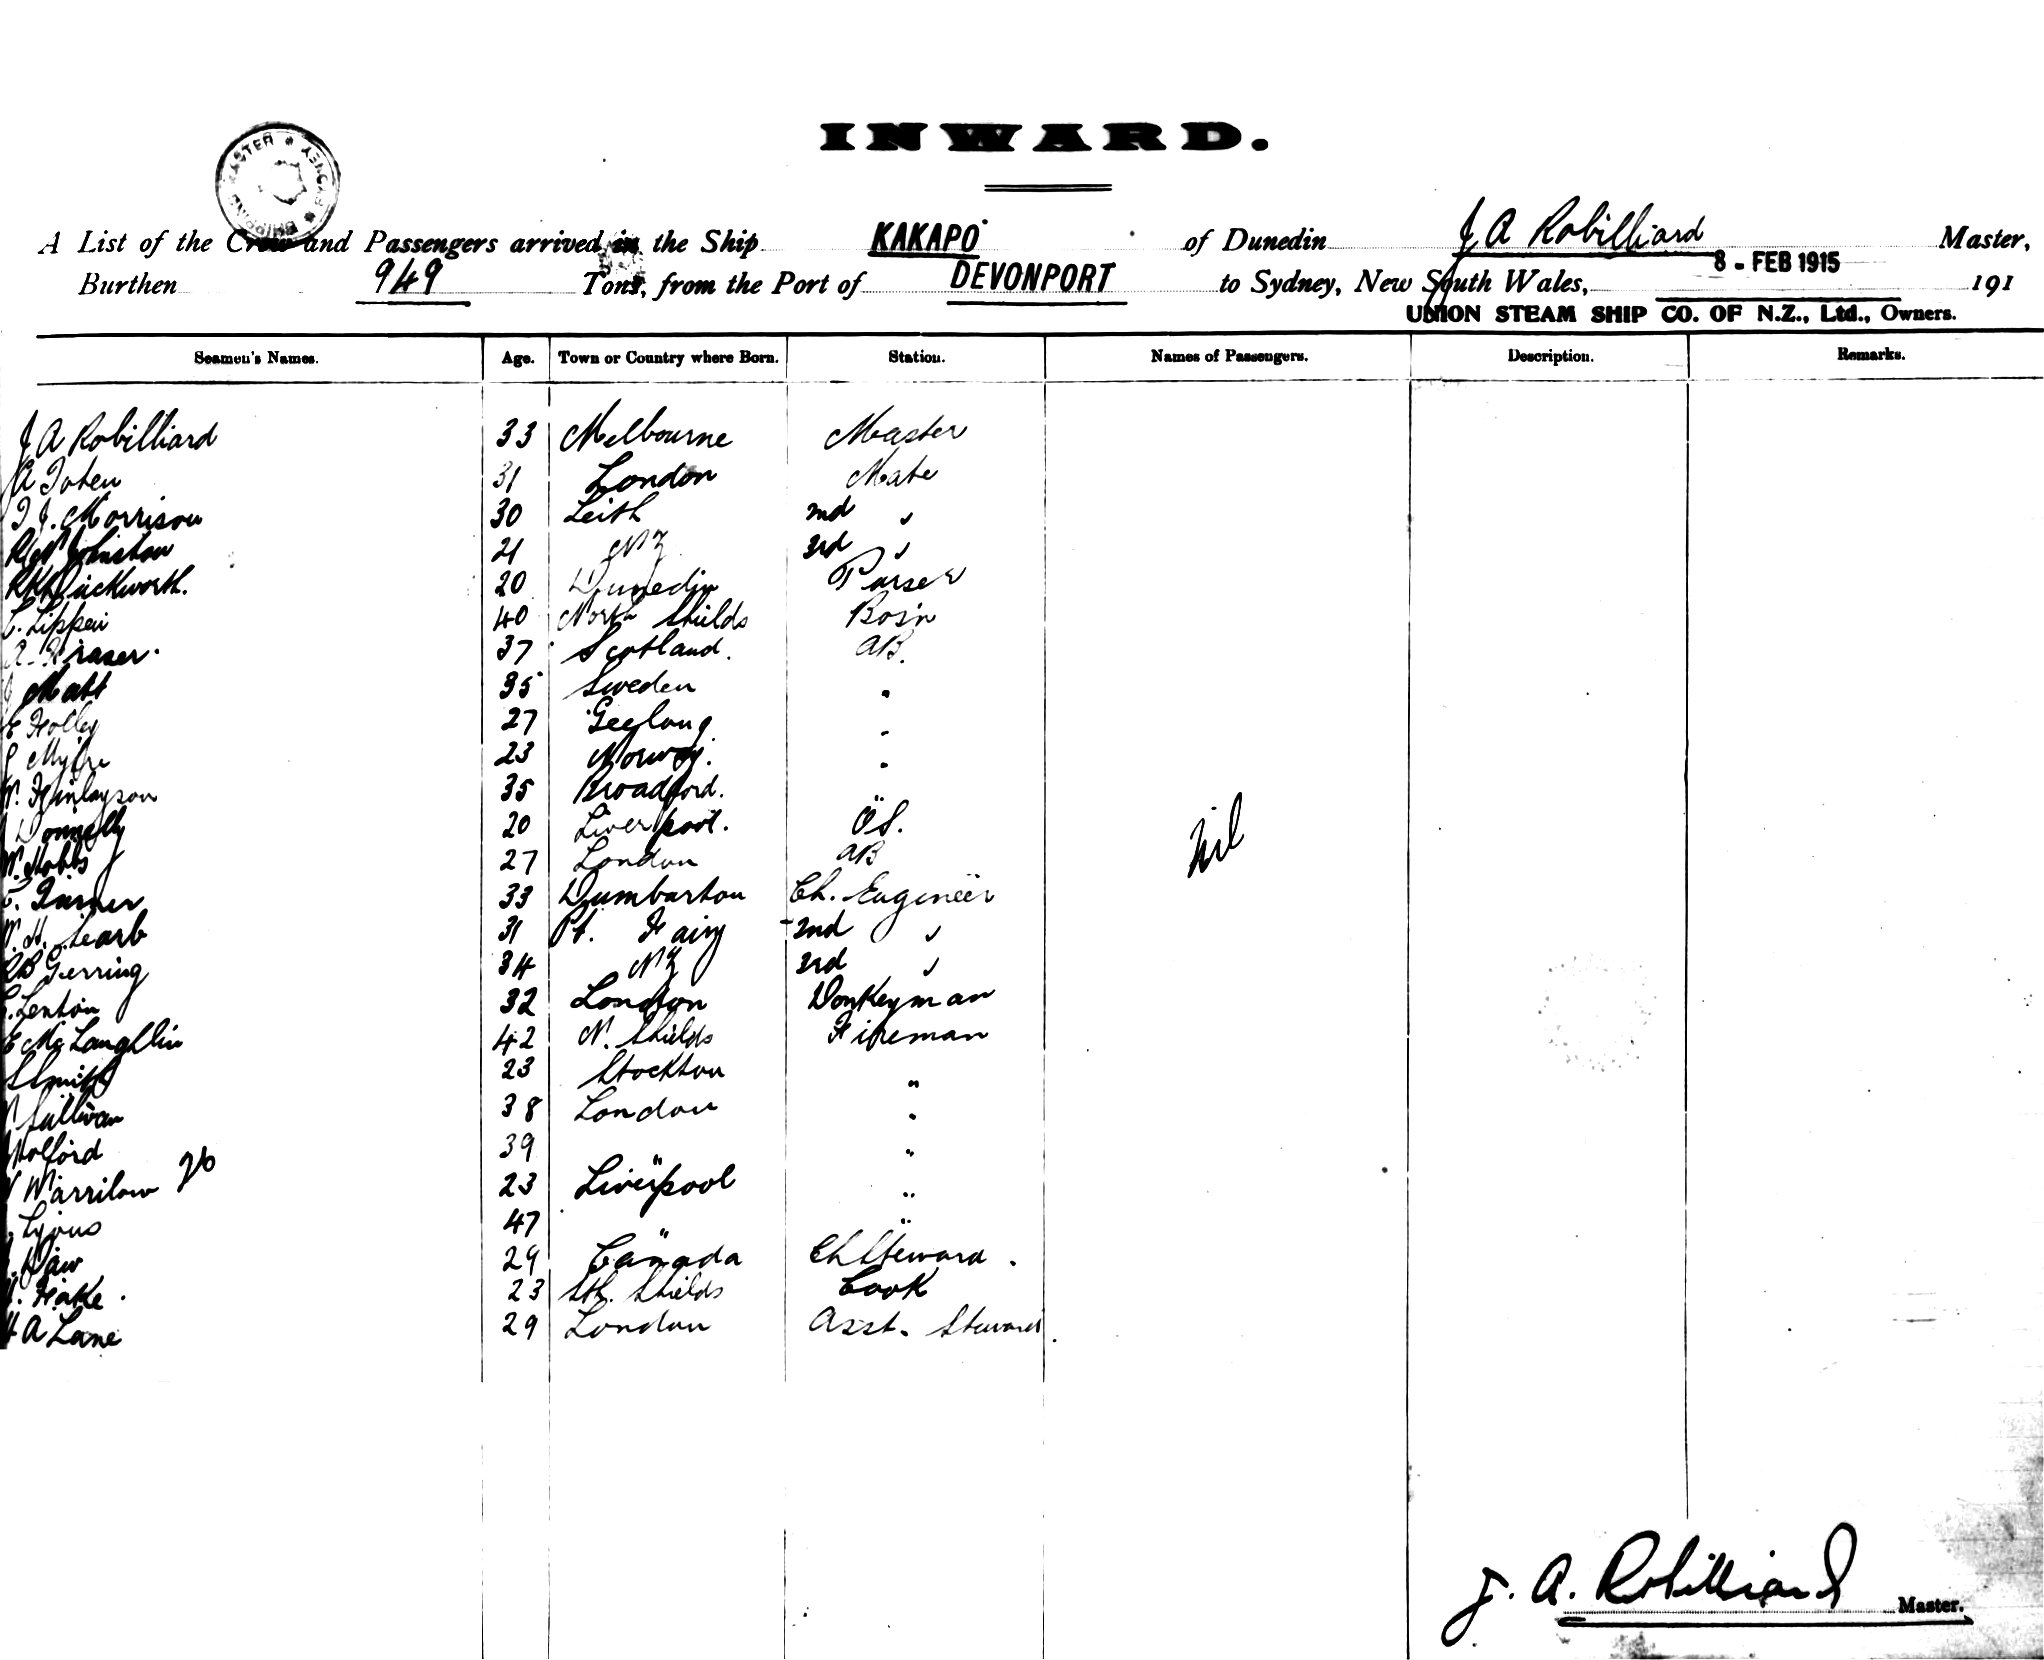 INWARD.
SHIPPING MASTER * SYDNEY *
A List of the Crew and Passengers arrived in the Ship KAKAPO of Dunedin J A Robilliard Master,
Burthen 949 Tons, from the Port of DEVONPORT to Sydney, New South Wales, 8 - FEB 1915 191
UNION STEAM SHIP CO. OF N.Z., Ltd., Owners.
Seamen's Names. Age. Town or Country where Born. Station. Names of Passengers. Description. Remarks.
J A Robilliard 33 Melbourne Master
A 31 London Mate
J. Morrison 30 Leith 2nd "
Johnston 21 NZ 3rd "
Duckworth. 20 Dunedin Purser
Lippen 40 North Shields Bos'n
A Fraser. 37 Scotland. AB.
Matt 35 Sweden "
E Holley 27 Geelong "
23 Norway. "
W. Finlayson 35 Broadford. "
Donnelly 20 Liverpool. OS.
W. Hobbs 27 London AB
Turner 33 Dumbarton Ch. Engineer
W. H. Searb 31 Pt. Fairy 2nd "
RB Gerring 34 NZ 3rd "
Lenton 32 London Donkeyman
E McLaughlin 42 N. Shields Fireman
S Smith 23 Stockton "
Sullivan 38 London "
Holford 39 " "
Warrilow 26 23 Liverpool "
Lyons 47 " "
Daw 29 Canada Ch Steward.
Hake. 23 Sth. Shields Cook
H A Lane 29 London Asst. Steward.
Nil
J. A. Robilliard Master.